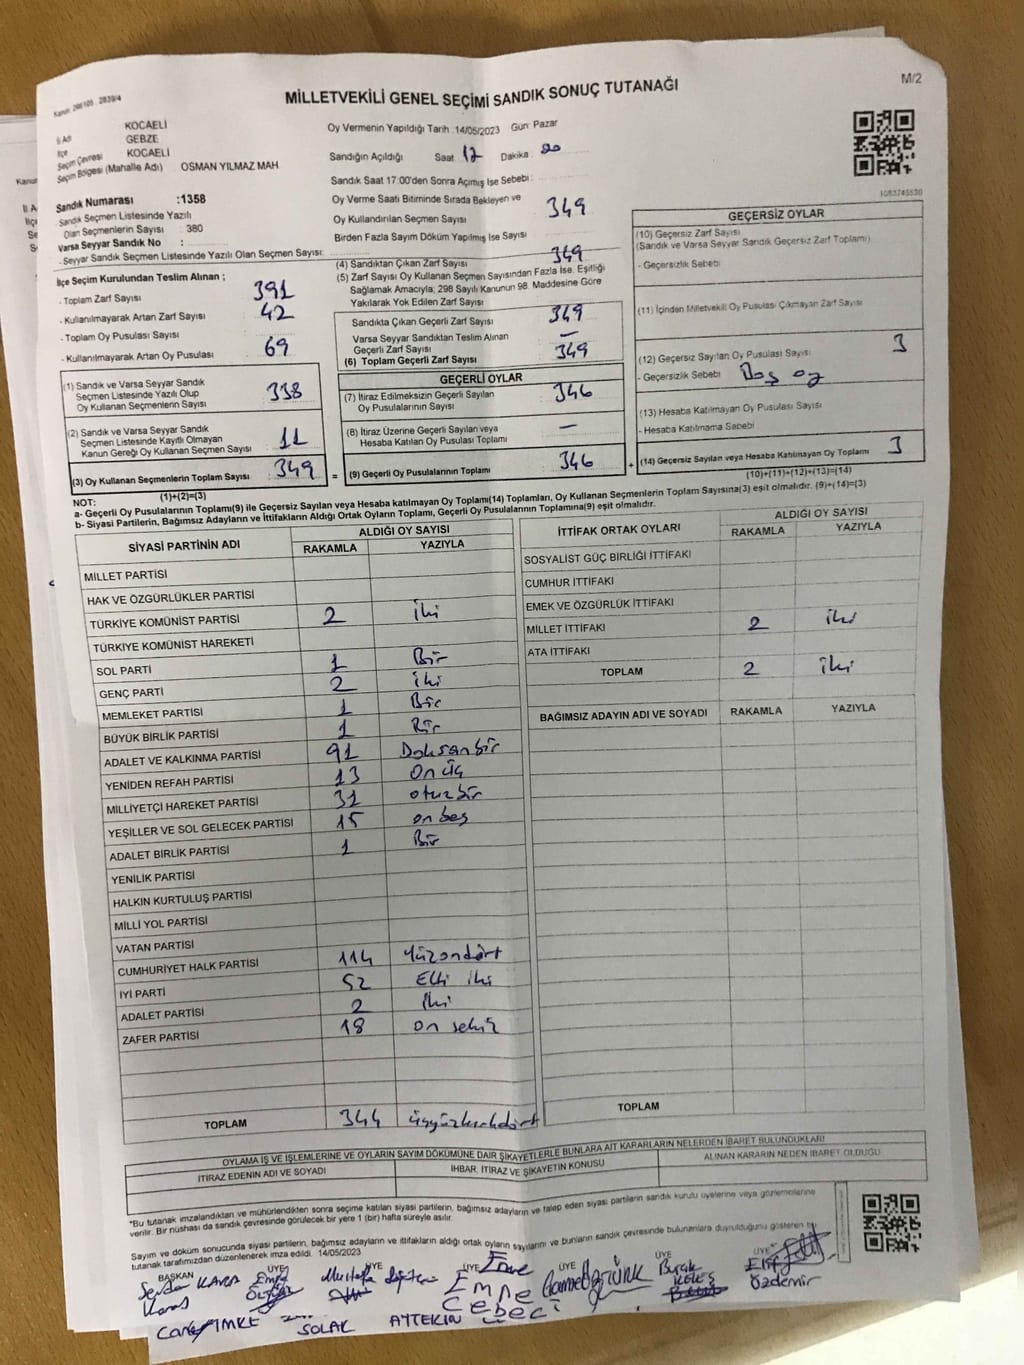 Kanun: 298105 . 2839/4
MİLLETVEKİLİ GENEL SEÇİMİ SANDIK SONUÇ TUTANAĞI
M/2
İl Adı KOCAELİ
İlçe GEBZE
Seçim Çevresi KOCAELİ
Seçim Bölgesi (Mahalle Adı) OSMAN YILMAZ MAH
Sandık Numarası :1358
Sandık Seçmen Listesinde Yazılı
Olan Seçmenlerin Sayısı : 380
Varsa Seyyar Sandık No :
- Seyyar Sandık Seçmen Listesinde Yazılı Olan Seçmen Sayısı:
İlçe Seçim Kurulundan Teslim Alınan ;
- Toplam Zarf Sayısı 391
- Kullanılmayarak Artan Zarf Sayısı 42
- Toplam Oy Pusulası Sayısı
- Kullanılmayarak Artan Oy Pusulası 69
(1) Sandık ve Varsa Seyyar Sandık
Seçmen Listesinde Yazılı Olup
Oy Kullanan Seçmenlerin Sayısı : 338
(2) Sandık ve Varsa Seyyar Sandık
Seçmen Listesinde Kayıtlı Olmayan
Kanun Gereği Oy Kullanan Seçmen Sayısı : 11
(3) Oy Kullanan Seçmenlerin Toplam Sayısı : 349
(1)+(2)=(3)
Oy Vermenin Yapıldığı Tarih : 14/05/2023 Gün: Pazar
Sandığın Açıldığı Saat 17 Dakika : 20
Sandık Saat 17:00'den Sonra Açmış İse Sebebi :
Oy Verme Saati Bitiminde Sırada Bekleyen ve
Oy Kullandırılan Seçmen Sayısı : 349
Birden Fazla Sayım Döküm Yapılmış İse Sayısı :
(4) Sandıktan Çıkan Zarf Sayısı : 349
(5) Zarf Sayısı Oy Kullanan Seçmen Sayısından Fazla İse, Eşitliği
Sağlamak Amacıyla; 298 Sayılı Kanunun 98. Maddesine Göre
Yakılarak Yok Edilen Zarf Sayısı :
Sandıkta Çıkan Geçerli Zarf Sayısı : 349
Varsa Seyyar Sandıktan Teslim Alınan
Geçerli Zarf Sayısı : —
(6) Toplam Geçerli Zarf Sayısı : 349
GEÇERLİ OYLAR
(7) İtiraz Edilmeksizin Geçerli Sayılan
Oy Pusulalarının Sayısı : 346
(8) İtiraz Üzerine Geçerli Sayılan veya
Hesaba Katılan Oy Pusulası Toplamı : —
= (9) Geçerli Oy Pusulalarının Toplamı : 346
1083745530
GEÇERSİZ OYLAR
(10) Geçersiz Zarf Sayısı
(Sandık ve Varsa Seyyar Sandık Geçersiz Zarf Toplamı)
- Geçersizlik Sebebi :
(11) İçinden Milletvekili Oy Pusulası Çıkmayan Zarf Sayısı
(12) Geçersiz Sayılan Oy Pusulası Sayısı 3
- Geçersizlik Sebebi : Boş oy
(13) Hesaba Katılmayan Oy Pusulası Sayısı
- Hesaba Katılmama Sebebi
+ (14) Geçersiz Sayılan veya Hesaba Katılmayan Oy Toplamı 3
(10)+(11)+(12)+(13)=(14)
NOT:
a- Geçerli Oy Pusulalarının Toplamı(9) ile Geçersiz Sayılan veya Hesaba katılmayan Oy Toplamı(14) Toplamları, Oy Kullanan Seçmenlerin Toplam Sayısına(3) eşit olmalıdır. (9)+(14)=(3)
b- Siyasi Partilerin, Bağımsız Adayların ve İttifakların Aldığı Ortak Oyların Toplamı, Geçerli Oy Pusulalarının Toplamına(9) eşit olmalıdır.
SİYASİ PARTİNİN ADI ALDIĞI OY SAYISI
RAKAMLA YAZIYLA
MİLLET PARTİSİ
HAK VE ÖZGÜRLÜKLER PARTİSİ
TÜRKİYE KOMÜNİST PARTİSİ 2 iki
TÜRKİYE KOMÜNİST HAREKETİ
SOL PARTİ 1 Bir
GENÇ PARTİ 2 iki
MEMLEKET PARTİSİ 1 Bir
BÜYÜK BİRLİK PARTİSİ 1 Bir
ADALET VE KALKINMA PARTİSİ 91 Doksan bir
YENİDEN REFAH PARTİSİ 13 on üç
MİLLİYETÇİ HAREKET PARTİSİ 31 otuz bir
YEŞİLLER VE SOL GELECEK PARTİSİ 15 on beş
ADALET BİRLİK PARTİSİ 1 Bir
YENİLİK PARTİSİ
HALKIN KURTULUŞ PARTİSİ
MİLLİ YOL PARTİSİ
VATAN PARTİSİ
CUMHURİYET HALK PARTİSİ 114 Yüzondört
İYİ PARTİ 52 Elli iki
ADALET PARTİSİ 2 iki
ZAFER PARTİSİ 18 on sekiz
TOPLAM 344 üçyüzkırkdört
İTTİFAK ORTAK OYLARI ALDIĞI OY SAYISI
RAKAMLA YAZIYLA
SOSYALİST GÜÇ BİRLİĞİ İTTİFAKI
CUMHUR İTTİFAKI
EMEK VE ÖZGÜRLÜK İTTİFAKI
MİLLET İTTİFAKI 2 iki
ATA İTTİFAKI
TOPLAM 2 iki
BAĞIMSIZ ADAYIN ADI VE SOYADI RAKAMLA YAZIYLA
TOPLAM
OYLAMA İŞ VE İŞLEMLERİNE VE OYLARIN SAYIM DÖKÜMÜNE DAİR ŞİKAYETLERLE BUNLARA AİT KARARLARIN NELERDEN İBARET BULUNDUKLARI
İTİRAZ EDENİN ADI VE SOYADI İHBAR, İTİRAZ VE ŞİKAYETİN KONUSU ALINAN KARARIN NEDEN İBARET OLDUĞU
*Bu tutanak imzalandıktan ve mühürlendikten sonra seçime katılan siyasi partilerin, bağımsız adayların ve talep eden siyasi partilerin sandık kurulu üyelerine veya gözlemcilerine
verilir. Bir nüshası da sandık çevresinde görülecek bir yere 1 (bir) hafta süreyle asılır.
Sayım ve döküm sonucunda siyasi partilerin, bağımsız adayların ve ittifakların aldığı ortak oyların sayılarını ve bunların sandık çevresinde bulunanlara duyurulduğunu gösteren bu
tutanak tarafımızdan düzenlenerek imza edildi. 14/05/2023
BAŞKAN ÜYE ÜYE ÜYE ÜYE ÜYE ÜYE
KARA Emre Mustafa Emre ÖZTÜRK Burak Elif
CEBECİ KELEŞ Özdemir
SOLAK AYTEKİN